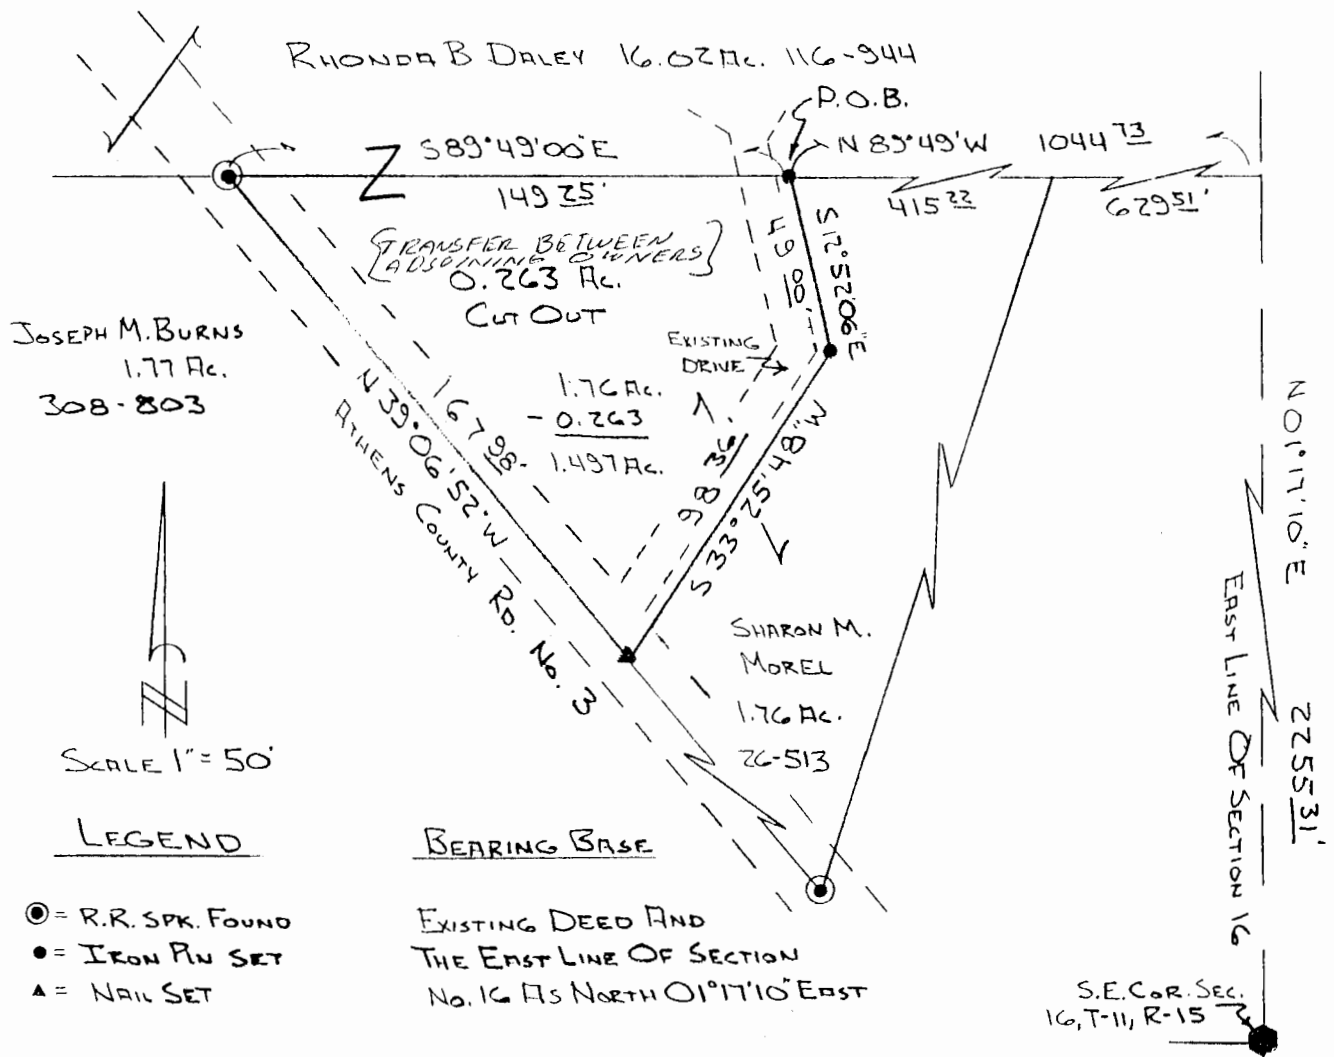 RHONDA B DALEY 16.02 Ac. 116-944
P.O.B.
S 89°49'00"E
149 25'
N 89°49'W 1044 73
415 22
629 51'
[TRANSFER BETWEEN
ADJOINING OWNERS]
0.263 Ac.
CUT OUT
S 12°52'06"E
49 00'
EXISTING
DRIVE
JOSEPH M. BURNS
1.77 Ac.
308-803
1.76 Ac.
- 0.263
1.497 Ac.
N 39°06'52"W
167 98'
ATHENS COUNTY RD. No. 3
98 36
S 33°25'48"W
N 01°17'10"E 2255 31'
EAST LINE OF SECTION 16
SHARON M.
MOREL
1.76 Ac.
26-513
N
SCALE 1"= 50'
LEGEND
= R.R. SPK. FOUND
= IRON PIN SET
= NAIL SET
BEARING BASE
EXISTING DEED AND
THE EAST LINE OF SECTION
No. 16 AS NORTH 01°17'10" EAST
S.E. COR. SEC.
16, T-11, R-15